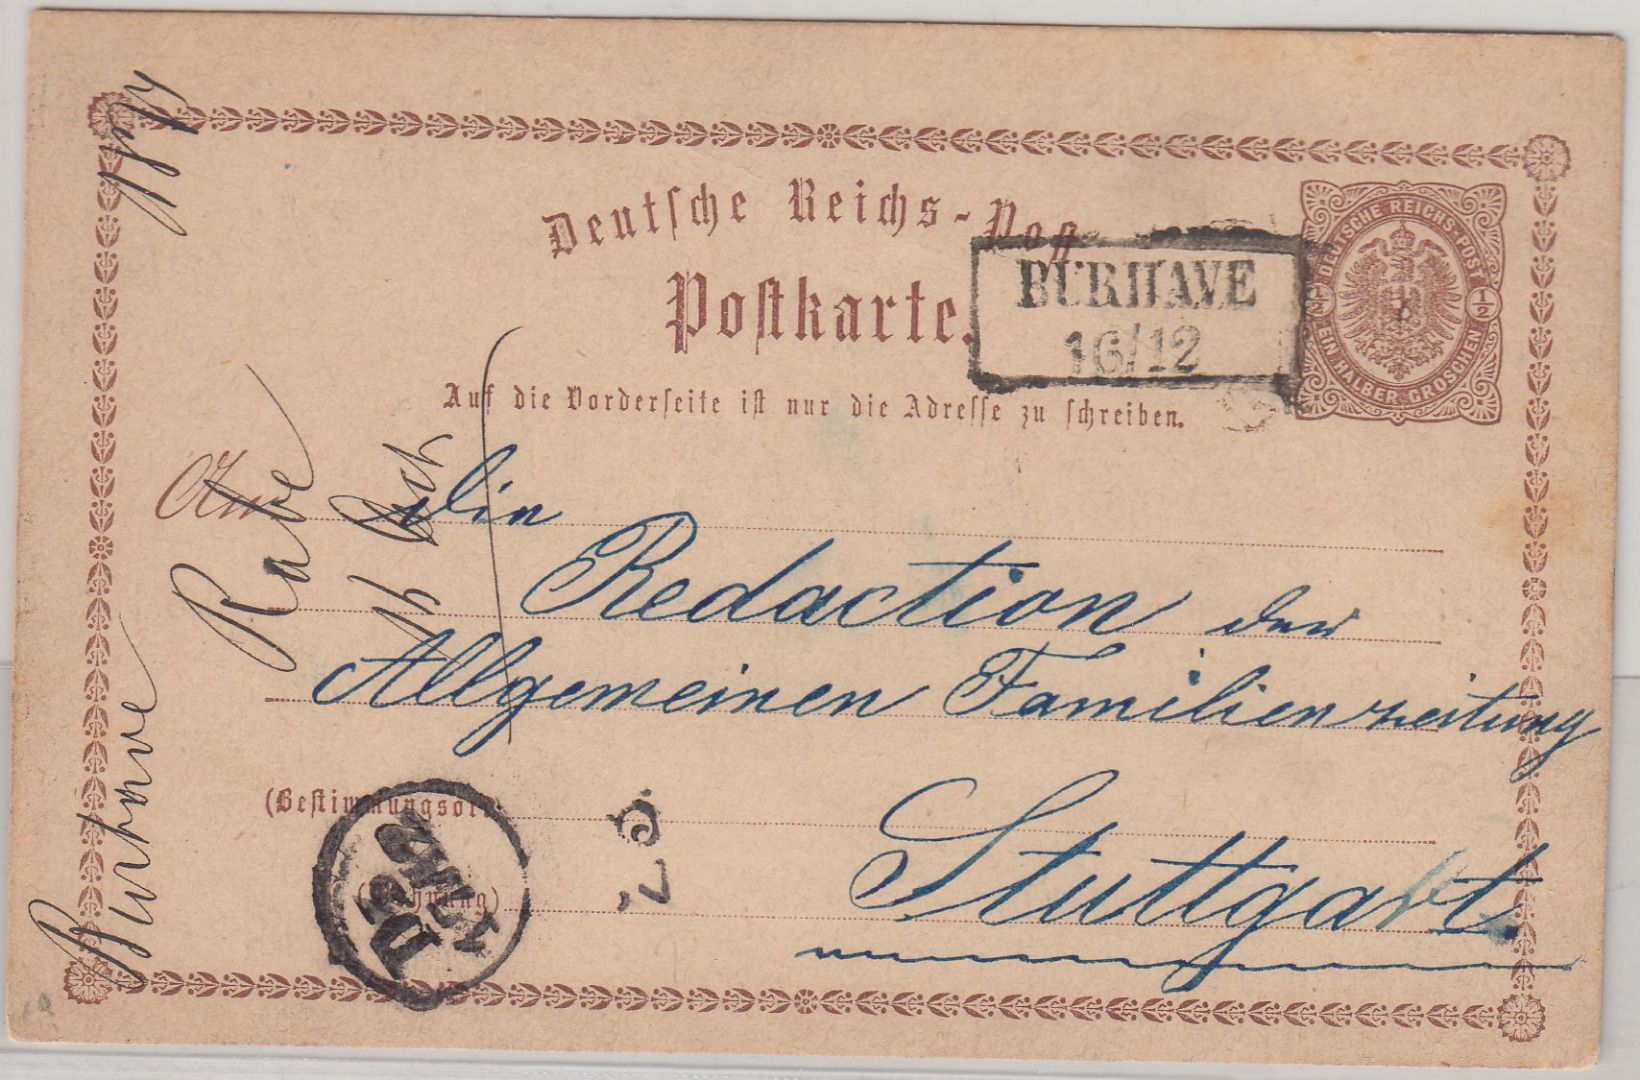 Deutsche Reichs-Post
Postkarte.
BURHAVE
16/12
DEUTSCHE REICHS-POST
1/2 1/2
EIN HALBER GROSCHEN
Auf die Vorderseite ist nur die Adresse zu schreiben.
An
die
Redaction der
Allgemeinen Familienzeitung
(Bestimmungsort)
Stuttgart.
(Wohnung)
Burhave
Rabe